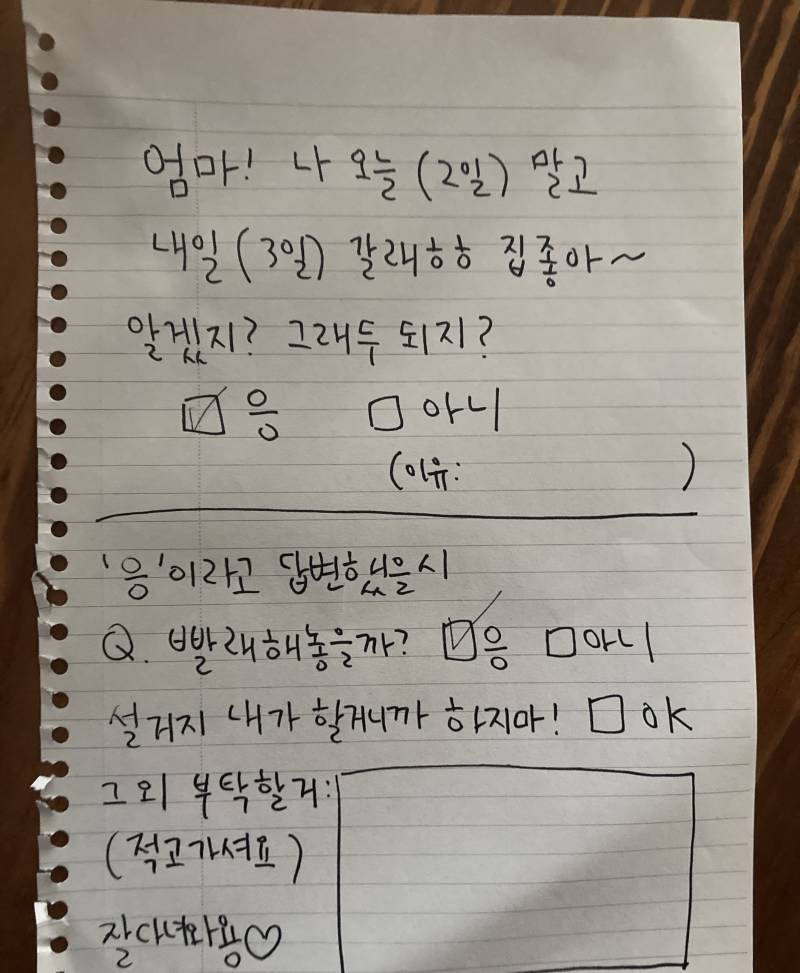 엄마! 나 오늘 (2일) 말고
내일 (3일) 갈래ㅎㅎ 집좋아~
알겠지? 그래두 되지?
☑ 응 ☐ 아니
(이유: )
'응'이라고 답변했을시
Q. 빨래해놓을까? ☑응 ☐아니
설거지 내가 할거니까 하지마! ☐ OK
그 외 부탁할거:
(적고가셔요)
잘다녀와용♡